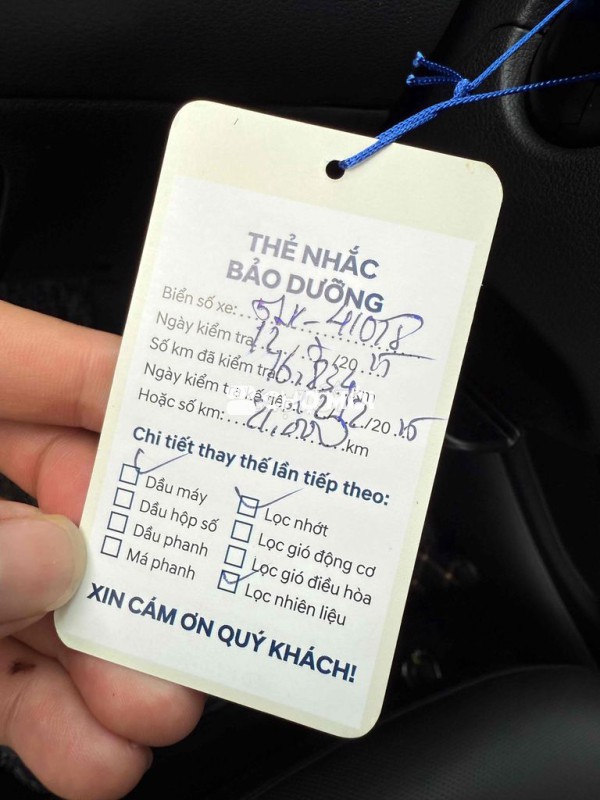 THẺ NHẮC
BẢO DƯỠNG
Biển số xe: 51K-41078
Ngày kiểm tra 12/8/2025
Số km đã kiểm tra
Ngày kiểm tra kế tiếp /20 25
Hoặc số km: km
Chi tiết thay thế lần tiếp theo:
Dầu máy
Dầu hộp số
Dầu phanh
Má phanh
Lọc nhớt
Lọc gió động cơ
Lọc gió điều hòa
Lọc nhiên liệu
XIN CÁM ƠN QUÝ KHÁCH!